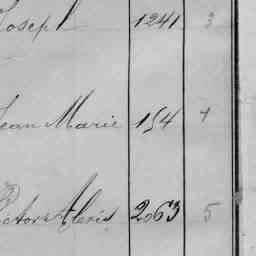 Joseph 1241 3
Jean Marie 154 4
Victor Alexis 2063 5